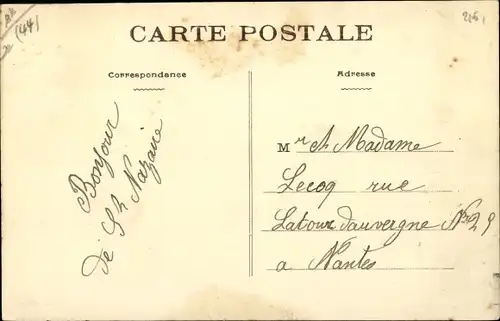 (44)
CARTE POSTALE
Correspondance
Adresse
Bonjour
de St Nazaire
Mr et Madame
Lecoq rue
Latour dauvergne No 29
a Nantes